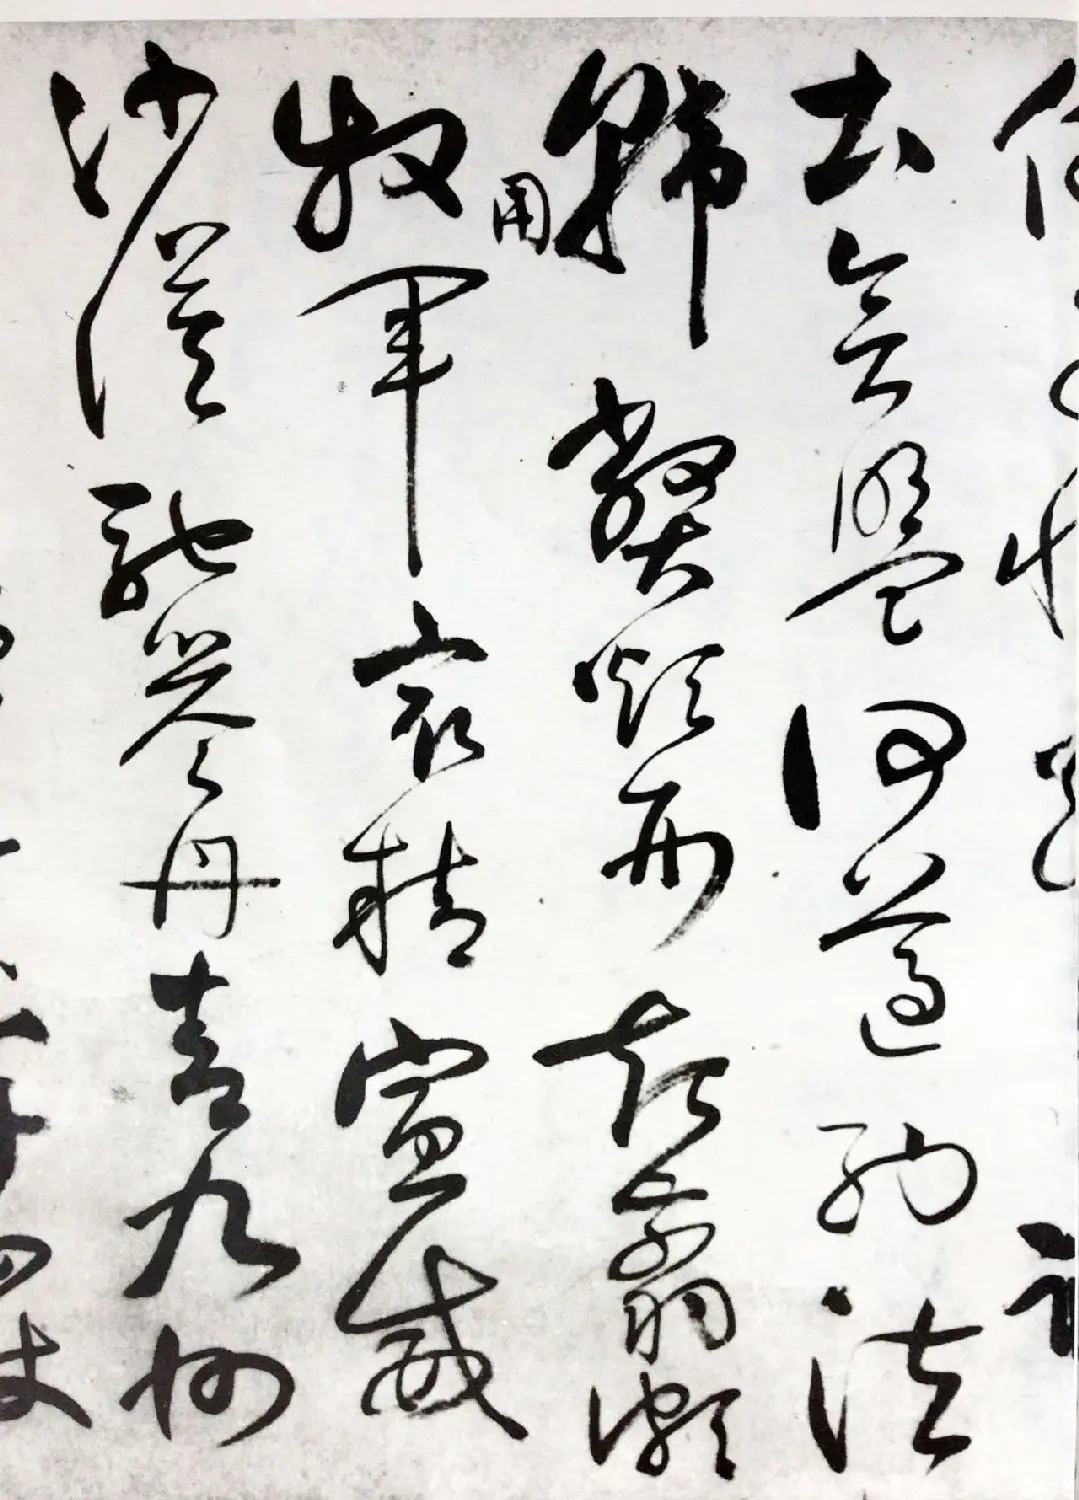 土會盟何遵約法
韓弊煩刑起翦頗
牧用軍最精宣威
沙漠馳譽丹青九州